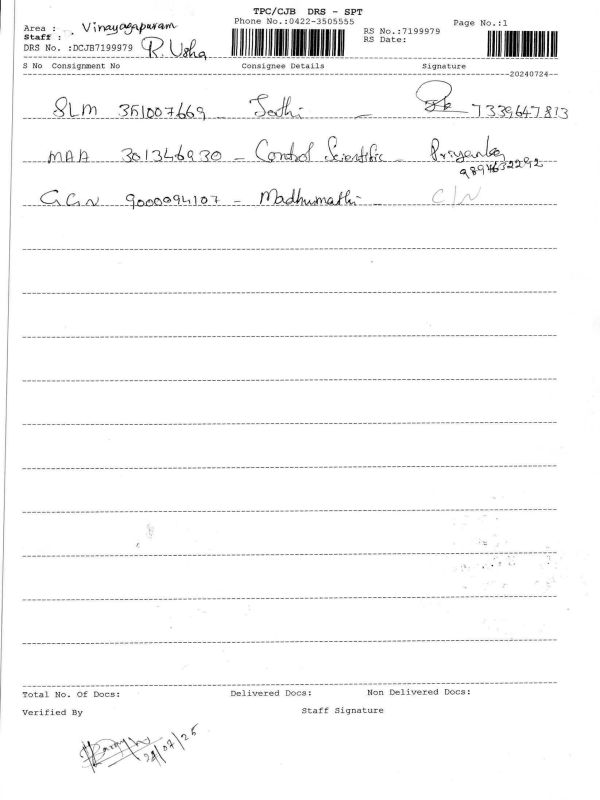 TPC/CJB DRS - SPT
Area : Vinayagapuram Phone No.:0422-3505555 Page No.:1
Staff : R. Usha RS No.:7199979
DRS No. :DCJB7199979 RS Date:
S No Consignment No Consignee Details Signature
20240724
SLM 351007669 - Jothi - 7339647813
MAA 301346930 - Control Scientific - Priyanka
9894632292
GGN 9000094107 - Madhumathi - C/N
Total No. Of Docs: Delivered Docs: Non Delivered Docs:
Verified By Staff Signature
24/07/25